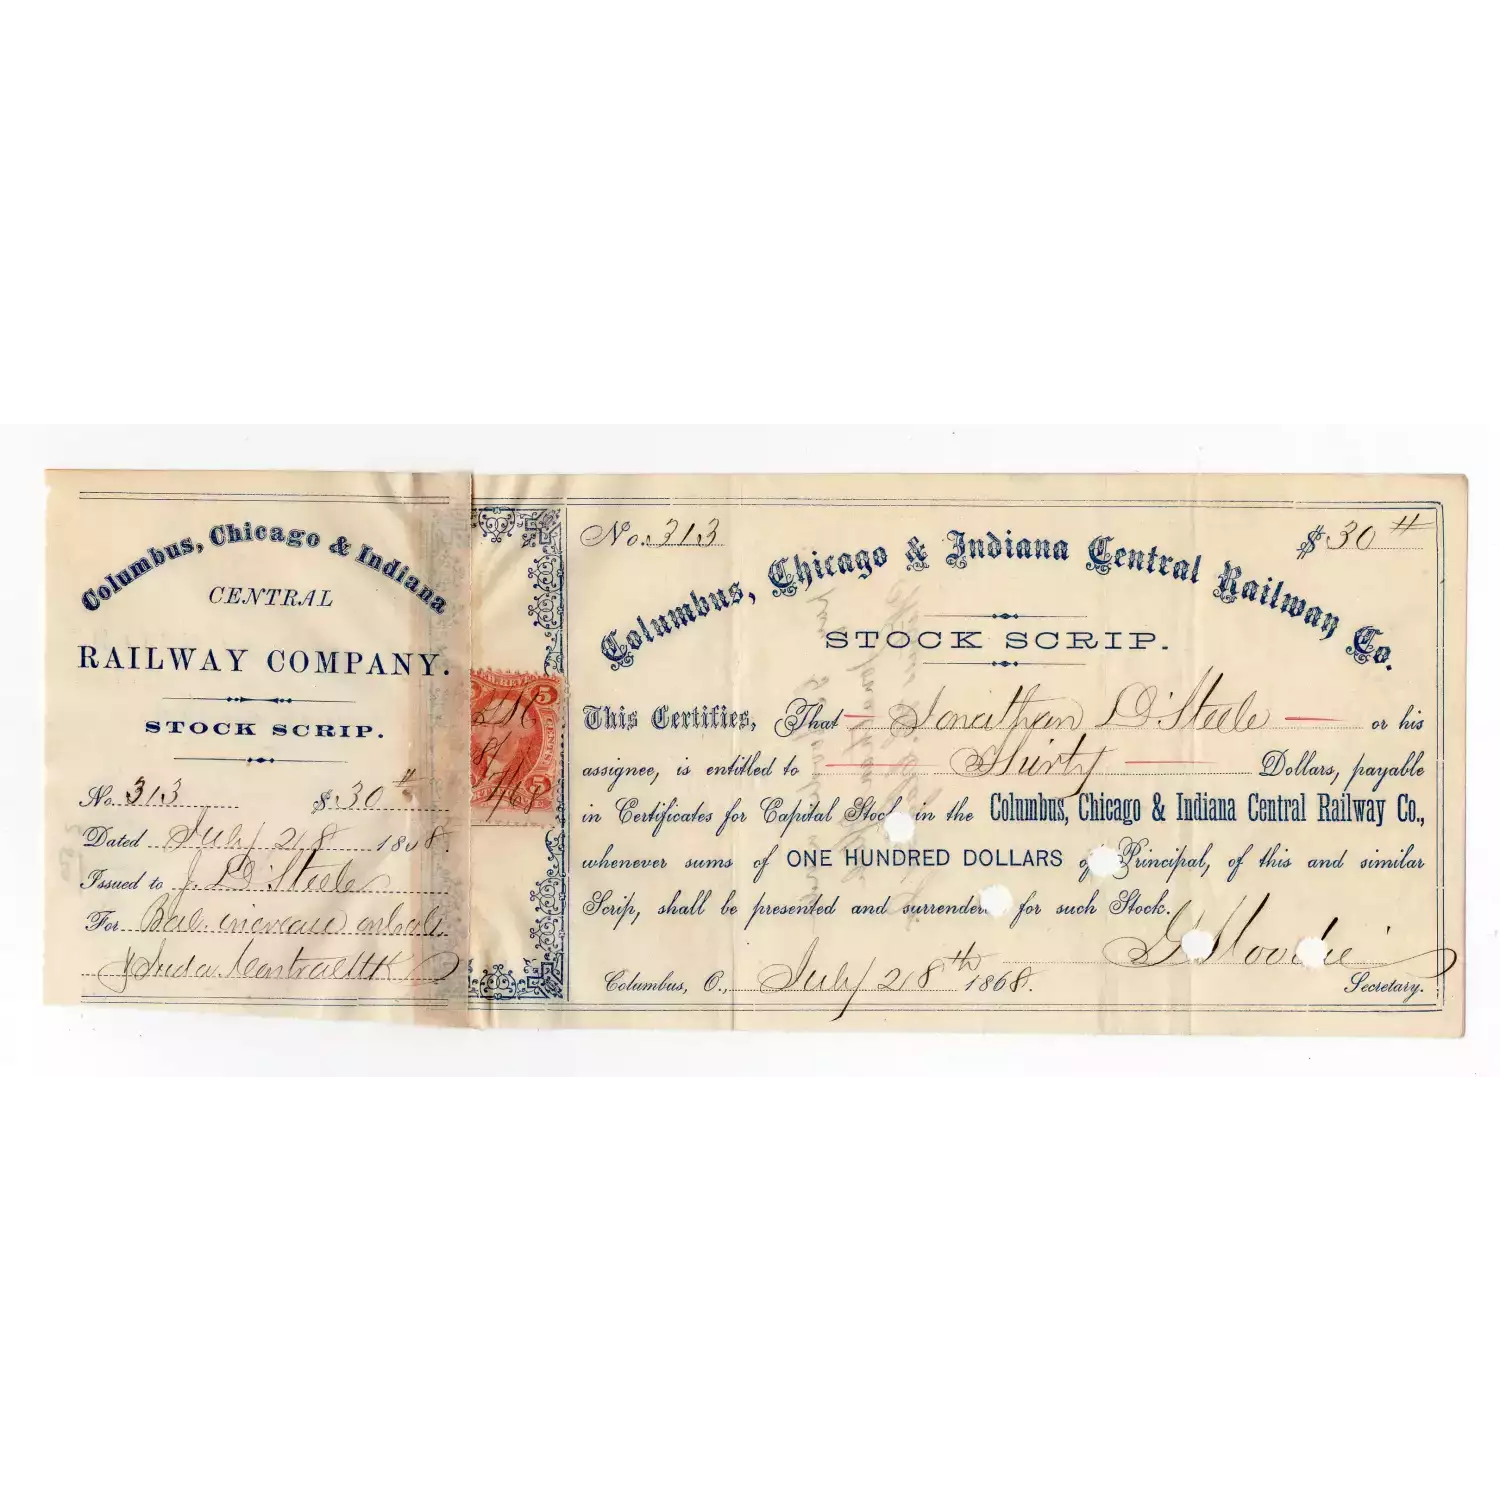 Columbus, Chicago & Indiana
CENTRAL
RAILWAY COMPANY.
STOCK SCRIP.
No. 313 $30
Dated July 28 1868.
Issued to J. D. Steele
For Bal. increase
Inda. Central
5
CENTS
5
7/68
No. 313 $30
Columbus, Chicago & Indiana Central Railway Co.
STOCK SCRIP.
This Certifies, That Jonathan D. Steele or his
assignee, is entitled to Thirty Dollars, payable
in Certificates for Capital Stock in the Columbus, Chicago & Indiana Central Railway Co.,
whenever sums of ONE HUNDRED DOLLARS of Principal, of this and similar
Scrip, shall be presented and surrendered for such Stock.
Columbus, O., July 28th 1868.
G. Moodie
Secretary.